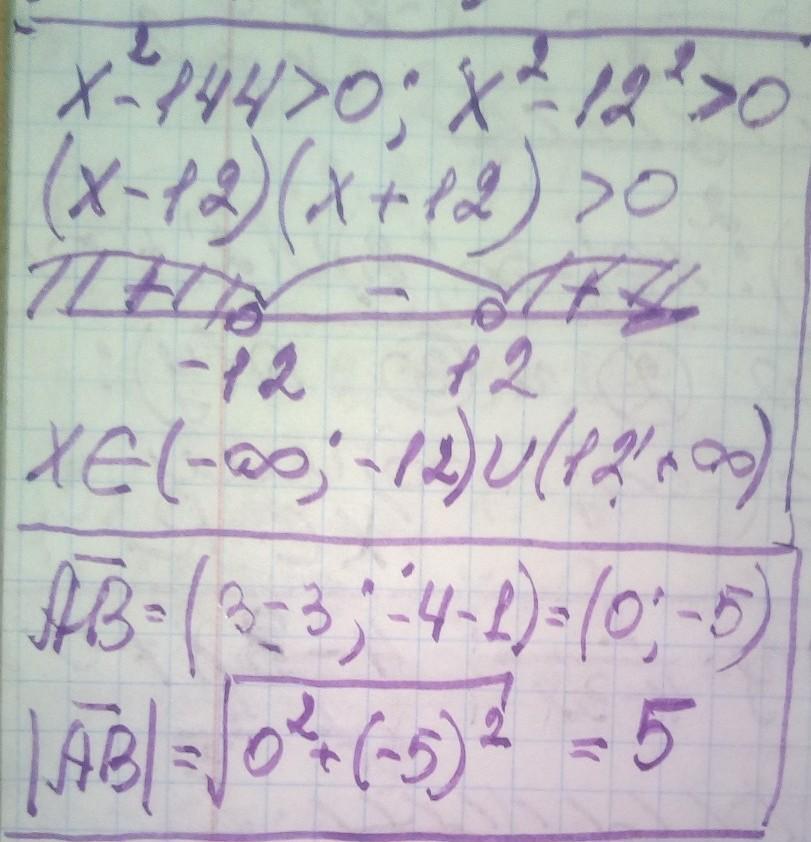 x²-144>0; x²-12²>0
(x-12)(x+12)>0
+ - +
-12 12
x∈(-∞;-12)∪(12;+∞)
AB̅=(3-3;-4-1)=(0;-5)
|AB̅|=√0²+(-5)²=5